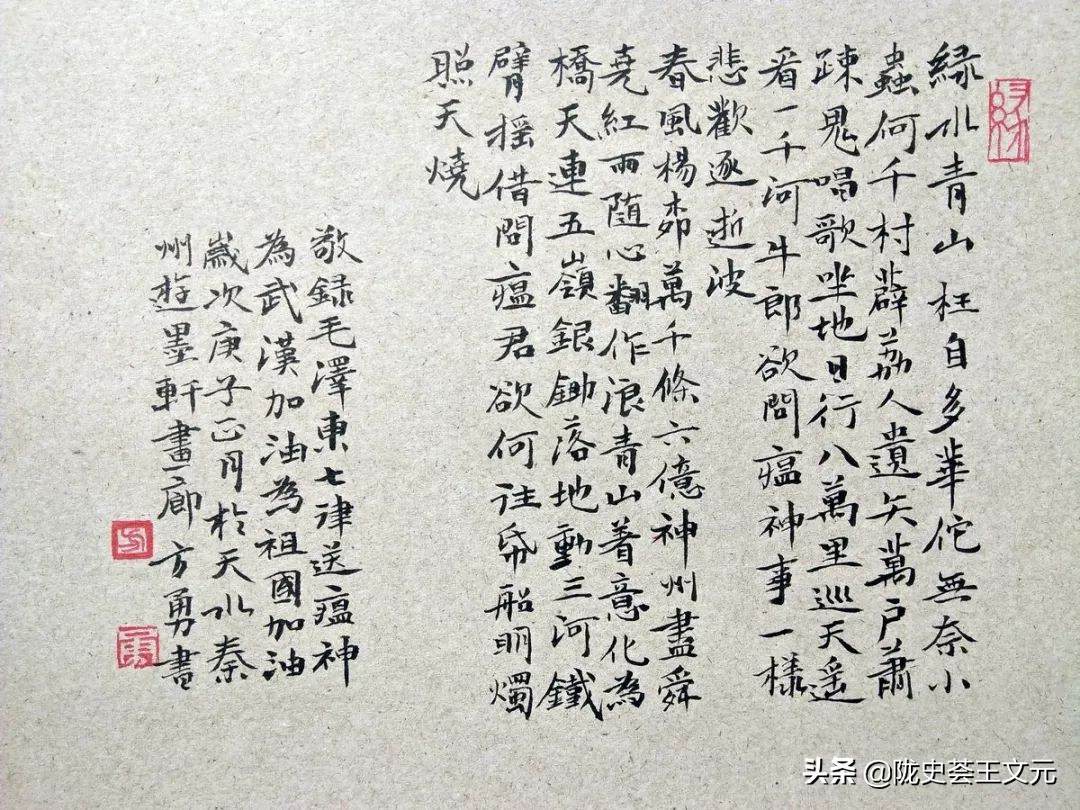 緑水青山枉自多華佗無奈小
蟲何千村薜荔人遺矢萬户蕭
疎鬼唱歌坐地日行八萬里巡天遥
看一千河牛郎欲問瘟神事一樣
悲歡逐逝波
春風楊柳萬千條六億神州盡舜
堯紅雨随心翻作浪青山着意化為
橋天連五嶺銀鋤落地動三河鐵
臂揺借問瘟君欲何往帋船明燭
照天燒
敬録毛澤東七律送瘟神
為武漢加油為祖國加油
歲次庚子正月於天水秦
州遊墨軒畫廊方勇書
头条 @陇史荟王文元